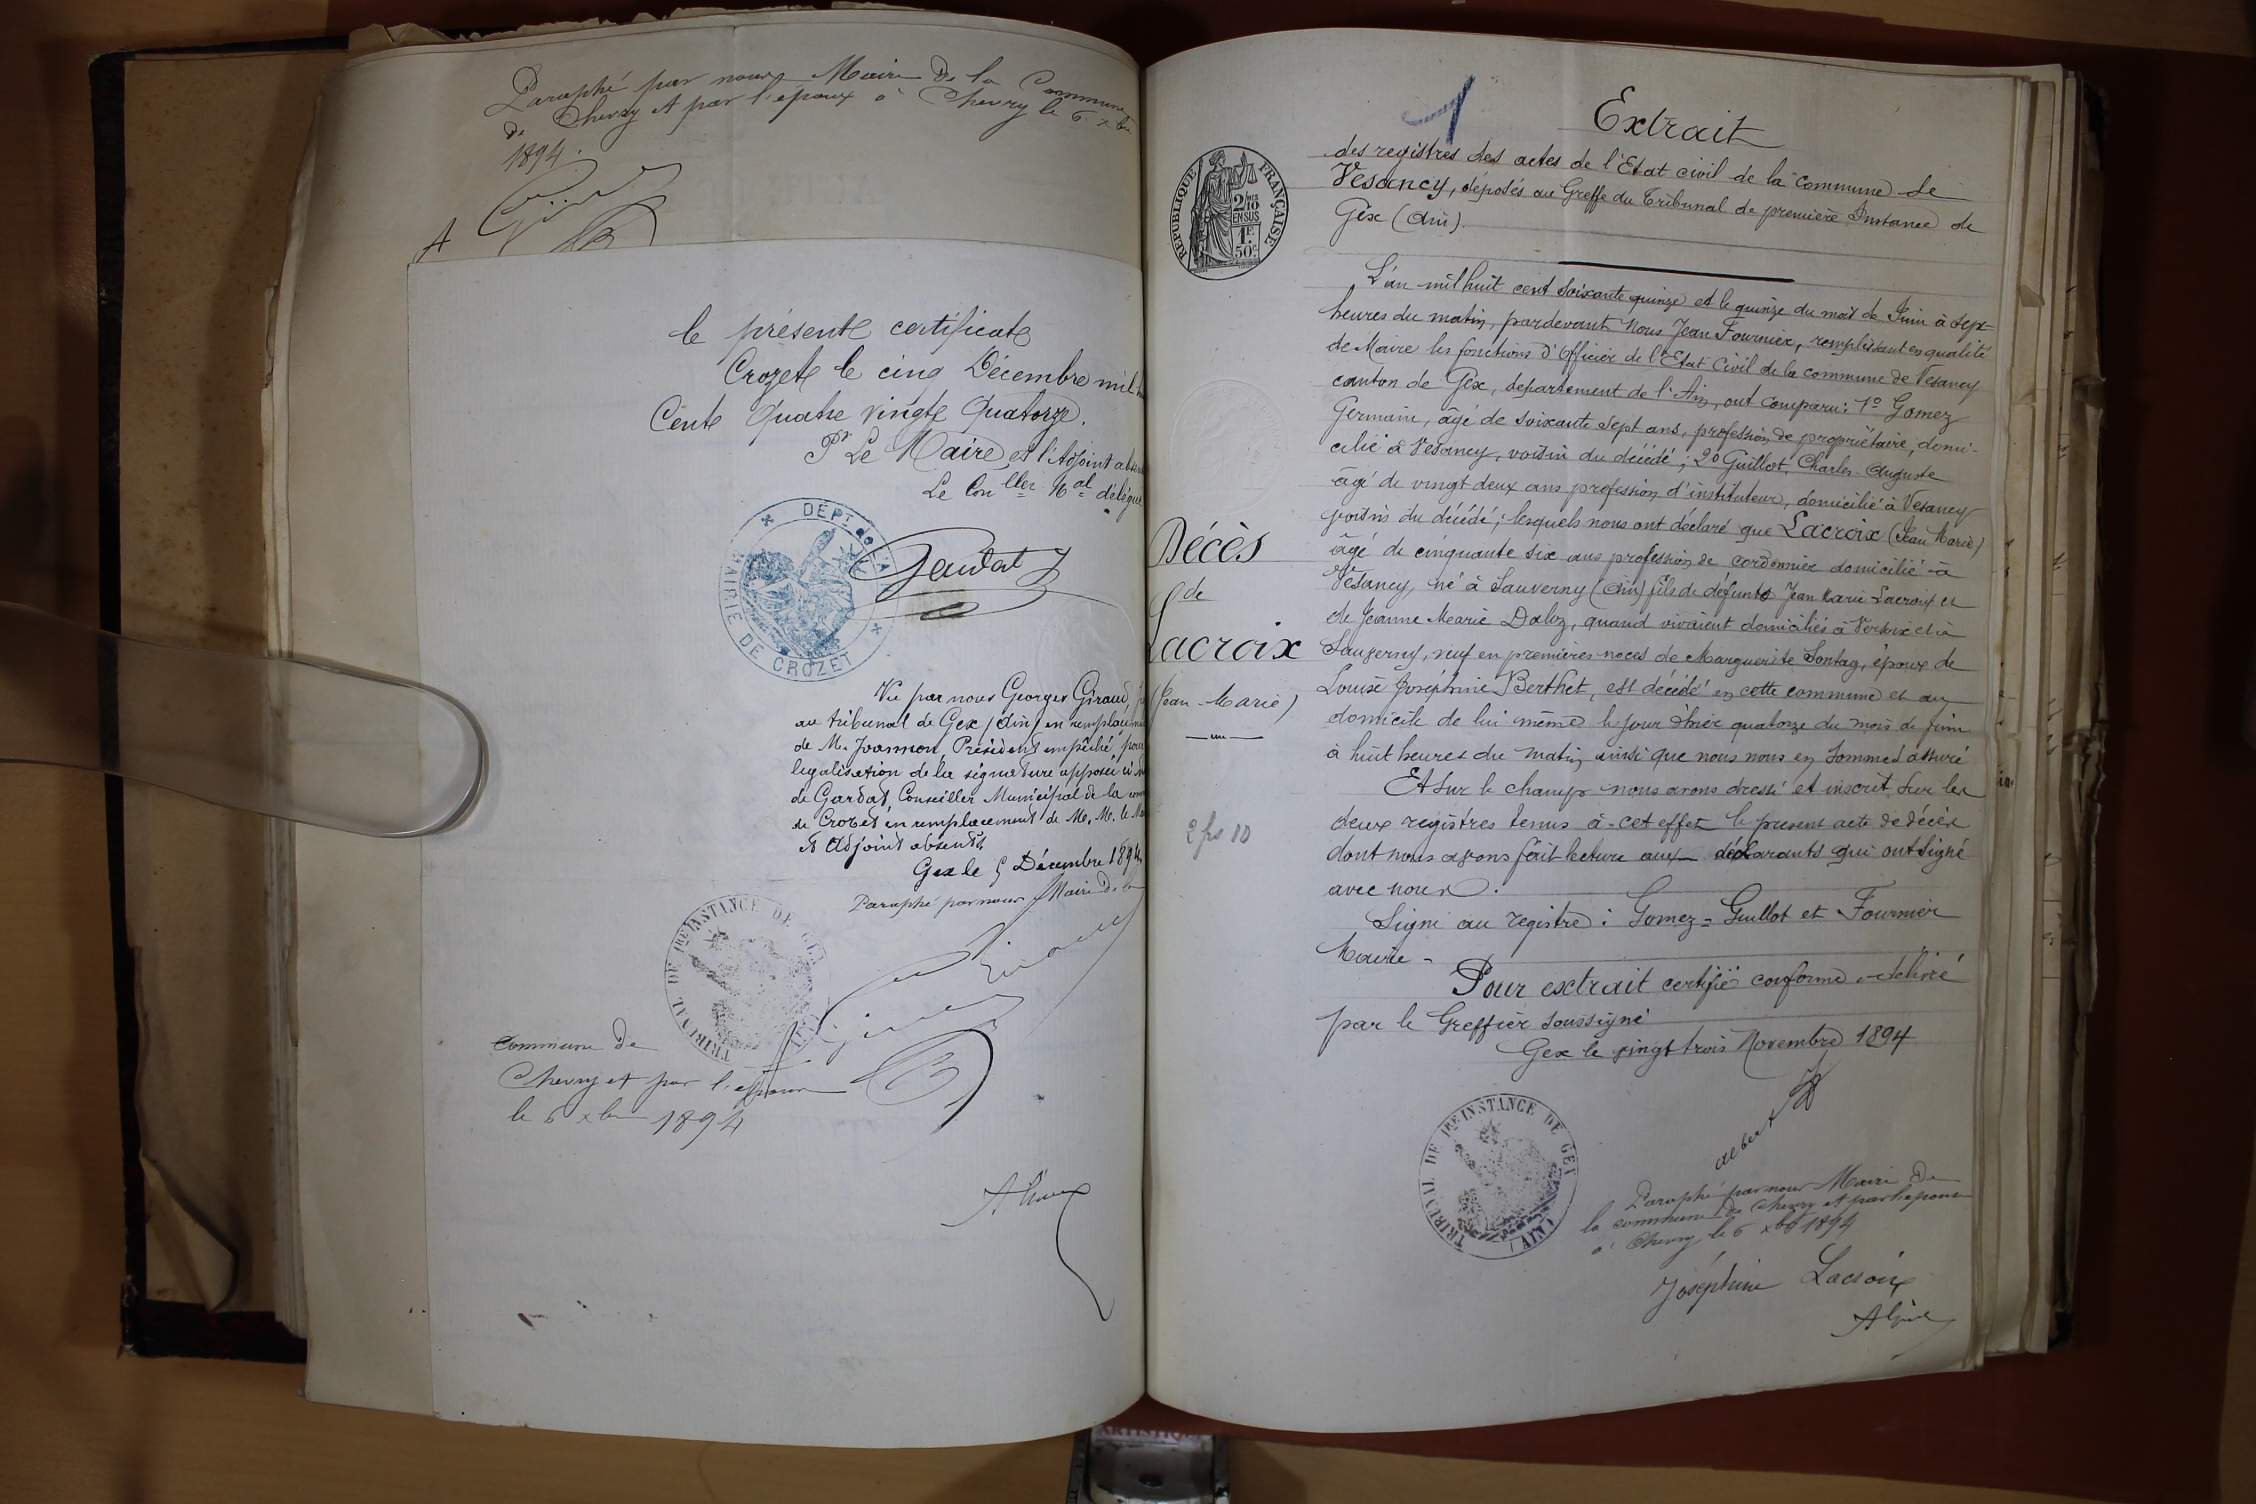 Paraphé par nous Maire de la Commune
de Chevry et par l'époux à Chevry le 6 xbre
1894.
A
le présente certificate
Crozete le cinq Décembre mil
Cente Quatre vingte Quatorze.
Pr Le Maire et l'Adjoint absen
Le Conller Mal délégué
DEPT de L'A
MAIRIE DE CROZET
Gandat
Vu par nous Georges Giraud, j
au tribunal de Gex (Ain) en remplacem
de M. Joannon Président empêché pour
legalisation de la signature apposée ci
de Gardat, Conseiller Municipal de la com
de Crozet en remplacement de M. M. le Ma
et Adjoint absents
Gex le 5 Décembre 1894
Paraphé par nous Maire de la
TRIBUNAL DE 1RE INSTANCE DE GEX
Commune de
Chevry et par l'époux
le 6 xbre 1894
1
Extrait
RÉPUBLIQUE FRANÇAISE
2/10
EN SUS
1F
50c
des registres des actes de l'Etat civil de la commune de
Vesancy, déposés au Greffe du Tribunal de première Instance de
Gex (Ain).
L'an mil huit cent soixante quinze et le quinze du mois de Juin à sept
heures du matin, pardevant Nous Jean Fournier, remplissant en qualité
de Maire les fonctions d'Officier de l'Etat Civil de la commune de Vesancy
canton de Gex, département de l'Ain, ont comparu: 1º Gomez
Germain, âgé de soixante sept ans, profession de propriétaire, domi-
cilié à Vesancy, voisin du décédé; 2º Guillot, Charles-Auguste
âgé de vingt deux ans profession d'instituteur, domicilié à Vesancy
voisins du décédé; lesquels nous ont déclaré que Lacroix (Jean Marie)
âgé de cinquante six ans profession de cordonnier domicilié à
Vesancy, né à Sauverny (Ain) fils de défunts Jean Marie Lacroix et
de Jeanne Marie Daloz, quand vivaient domiciliés à Versoix et à
Sauverny, veuf en premières noces de Marguerite Sontag, époux de
Louise Joséphine Berthet, est décédé en cette commune et au
domicile de lui même le jour d'hier quatorze du mois de juin
à huit heures du matin ainsi que nous nous en sommes assuré
Et sur le champ nous avons dressé et inscrit sur les
deux registres tenus à cet effet le present acte de décès
dont nous avons fait lecture aux déclarants qui ont signé
avec nous.
Signé au registre: Gomez = Guillot et Fournier
Maire -
Pour extrait certifié conforme et délivré
par le Greffier soussigné
Gex le vingt trois Novembre 1894
Décès
de
Lacroix
(Jean-Marie)
2 fs 10
Albert
TRIBUNAL DE 1RE INSTANCE DE GEX
(AIN)
Paraphé par nous Maire de
la commune de Chevry et par l'époux
à Chevry le 6 xbre 1894
Joséphine Lacroix